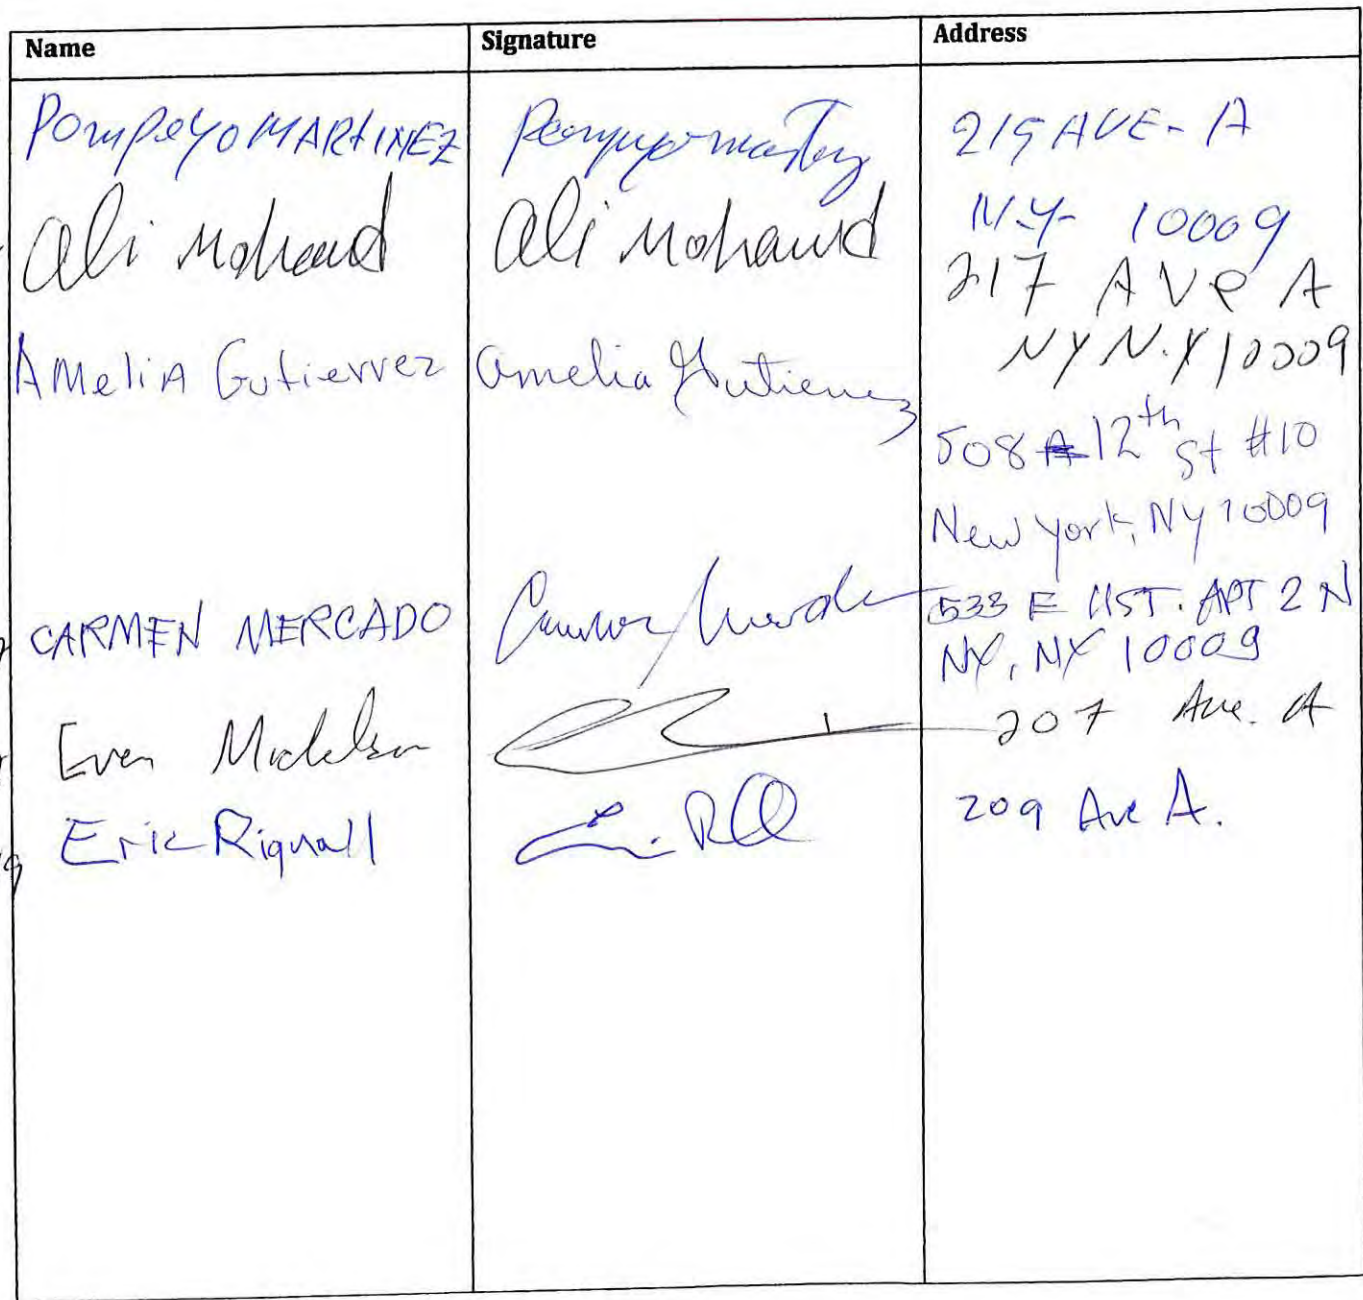 Name Signature Address
Pompeyo MARTINEZ 219 AVE- A
N.Y- 10009
Ali Mohamd Ali Mohamd 217 AVe A
NY N.Y 10009
AMeliA Gutierrez Amelia Gutierrez
508 12th St #10
New York, NY 10009
CARMEN MERCADO 533 E 11 ST. APT 2 N
NY, NY 10009
Even 207 Ave. A
Eric Rignall 209 Ave A.